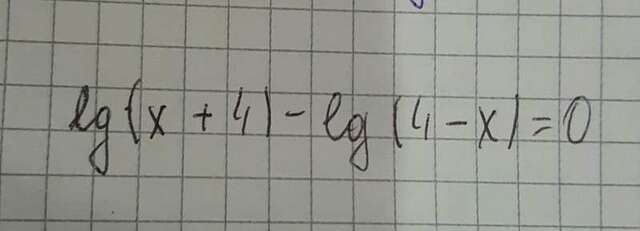 lg(x + 4) - lg(4 - x) = 0